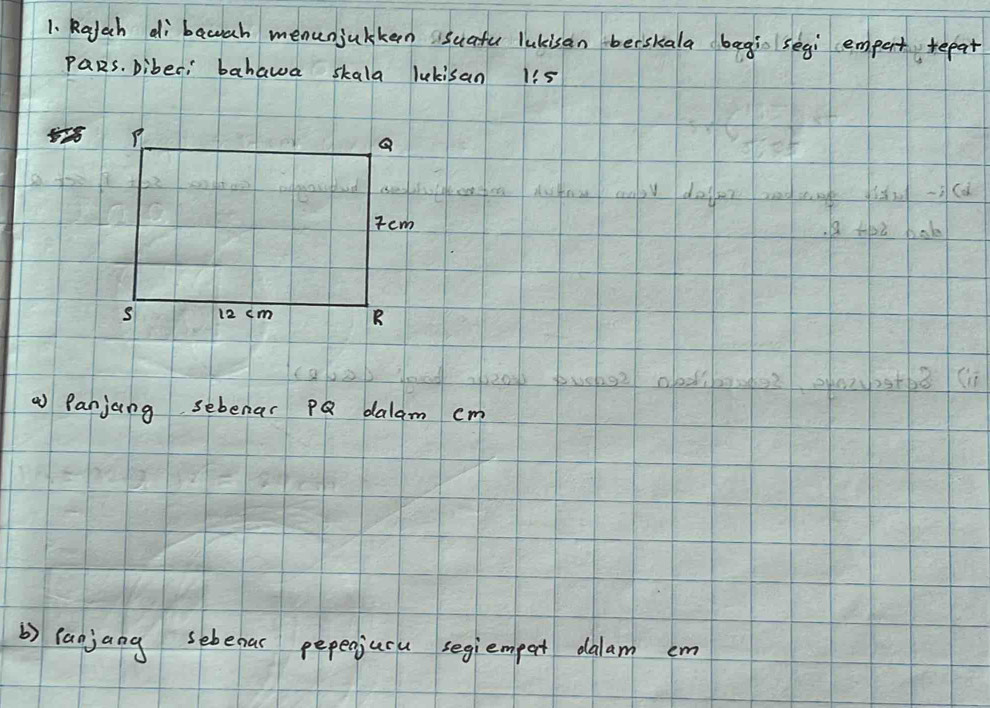 1. Rajah di bawah menunjukkan suatu lukisan berskala bagi segi empat tepat
PQRS. Diberi bahawa skala lukisan 1:5
P
Q
7cm
S
12 cm
R
a) Panjang sebenar PQ dalam cm
b) Panjang sebenar pepenjuru segiempat dalam cm